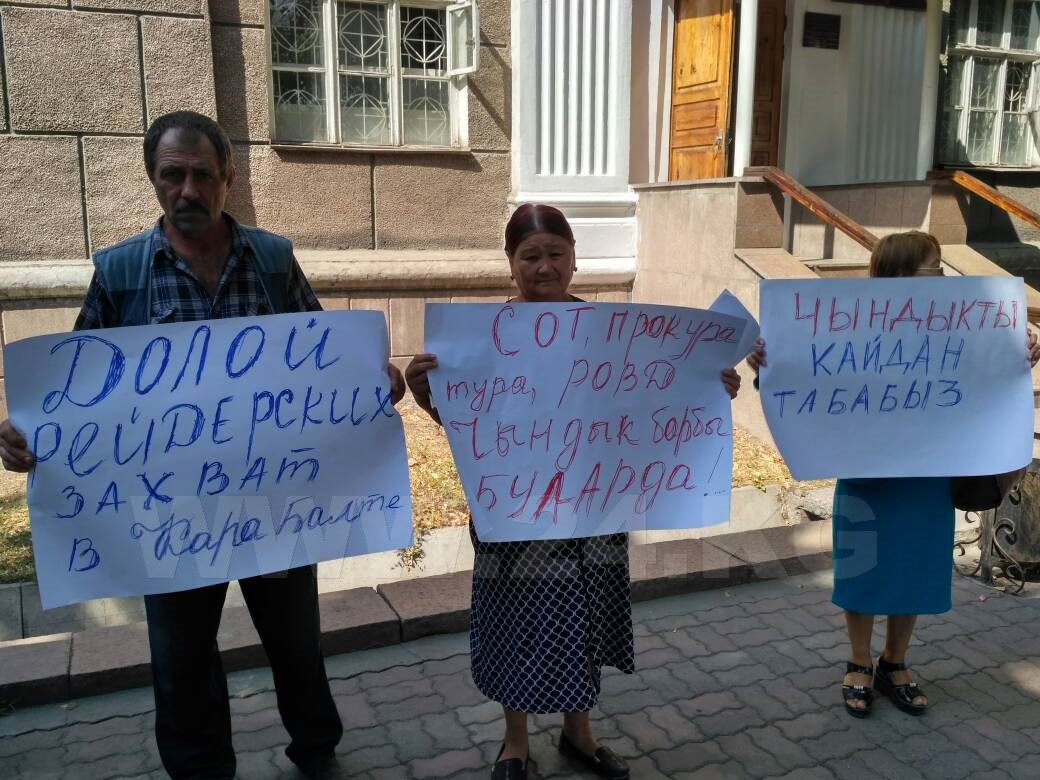 ДОЛОЙ
РЕЙДЕРСКИХ
ЗАХВАТ
В Кара Балте
СОТ, прокура
тура, РОВД
Чындык борбу
БУЛАРДА!...
ЧЫНДЫКТЫ
КАЙДАН
ТАБАБЫЗ
WWW.24.KG